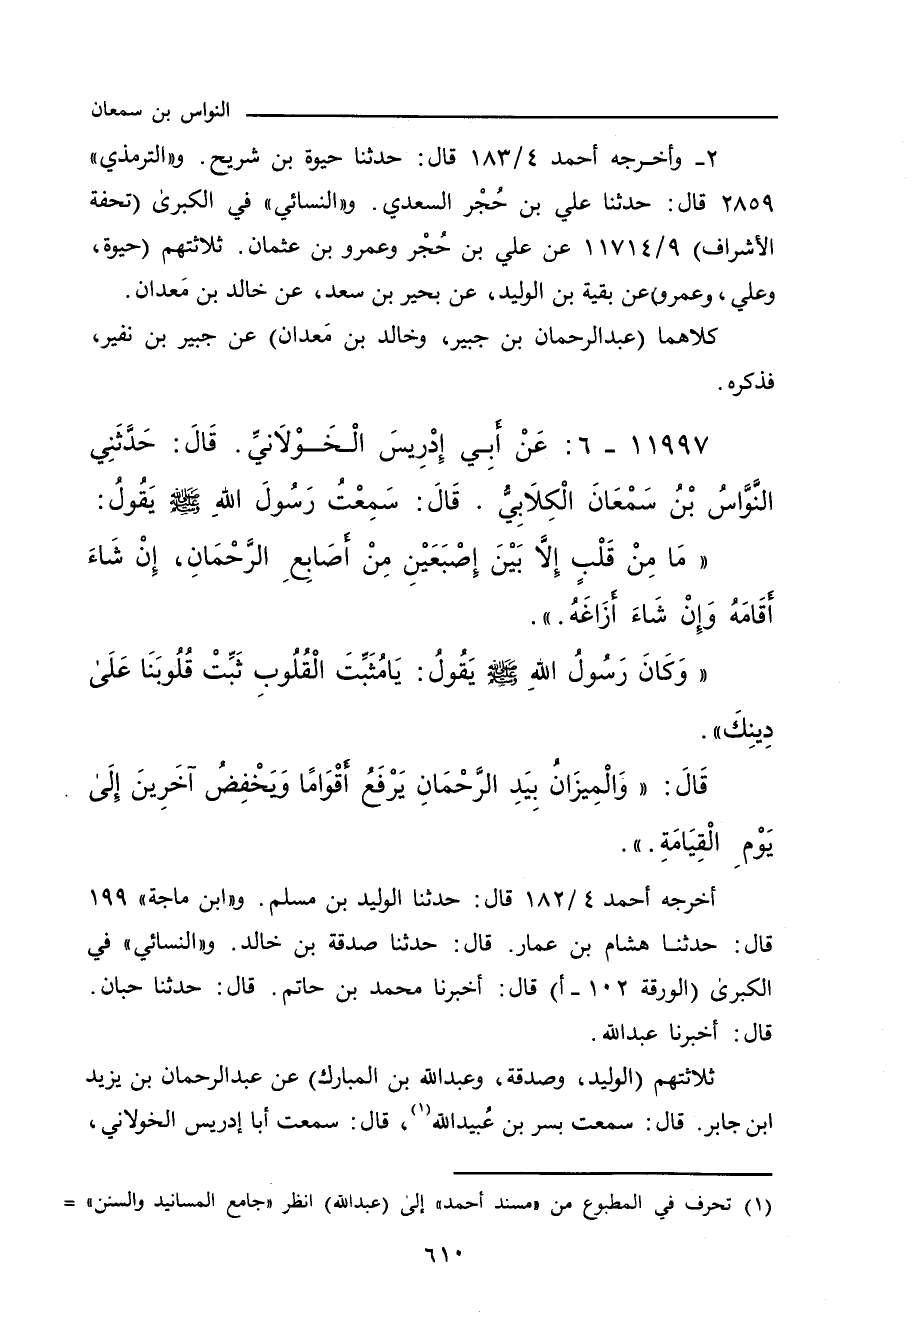 النواس بن سمعان
٢ـ وأخـرجه أحمد ٤ /١٨٣ قال: حدثنا حيوة بن شريح. و«الترمذي»
٢٨٥٩ قال: حدثنا علي بن حُجْر السعدي. و«النسائي» في الكبرىٰ (تحفة
الأشراف) ٩/ ١١٧١٤ عن علي بن حُجْر وعمرو بن عثمان. ثلاثتهم (حيوة،
وعلي، وعمرو)عن بقية بن الوليد، عن بحير بن سعد، عن خالد بن مَعدان.
كلاهما (عبدالرحمان بن جبير، وخالد بن مَعدان) عن جبير بن نفير،
فذكره.
١١٩٩٧ ـ ٦: عَنْ أَبِي إِدْرِيسَ الْـخَـوْلَانيِّ. قَالَ: حَدَّثَنِي
النَّوَّاسُ بْنُ سَمْعَانَ الْكِلَابِيُّ . قَالَ: سَمِعْتُ رَسُولَ اللهِ ﷺ يَقُولُ:
« مَا مِنْ قَلْبٍ إِلَّا بَيْنَ إِصْبَعَيْنِ مِنْ أَصَابِعِ الرَّحْمَانِ، إِنْ شَاءَ
أَقَامَهُ وَإِنْ شَاءَ أَزَاغَهُ.».
« وَكَانَ رَسُولُ اللهِ ﷺ يَقُولُ: يَامُثَبِّتَ الْقُلُوبِ ثَبِّتْ قُلُوبَنَا عَلَىٰ
دِينِكَ».
قَالَ: « وَالْمِيزَانُ بِيَدِ الرَّحْمَانِ يَرْفَعُ أَقْوَامًا وَيَخْفِضُ آخَرِينَ إِلَىٰ
يَوْمِ الْقِيَامَةِ.».
أخرجه أحمد ٤ /١٨٢ قال: حدثنا الوليد بن مسلم. و«ابن ماجة» ١٩٩
قال: حدثنـا هشام بن عمار. قال: حدثنا صدقة بن خالد. و«النسائي» في
الكبرىٰ (الورقة ١٠٢ ـ أ) قال: أخبرنا محمد بن حاتم. قال: حدثنا حبان.
قال: أخبرنا عبدالله.
ثلاثتهم (الوليد، وصدقة، وعبدالله بن المبارك) عن عبدالرحمان بن يزيد
ابن جابر. قال: سمعت بسر بن عُبيدالله(١)، قال: سمعت أبا إدريس الخولاني،
(١) تحرف في المطبوع من «مسند أحمد» إلىٰ (عبدالله) انظر «جامع المسانيد والسنن» =
٦١٠